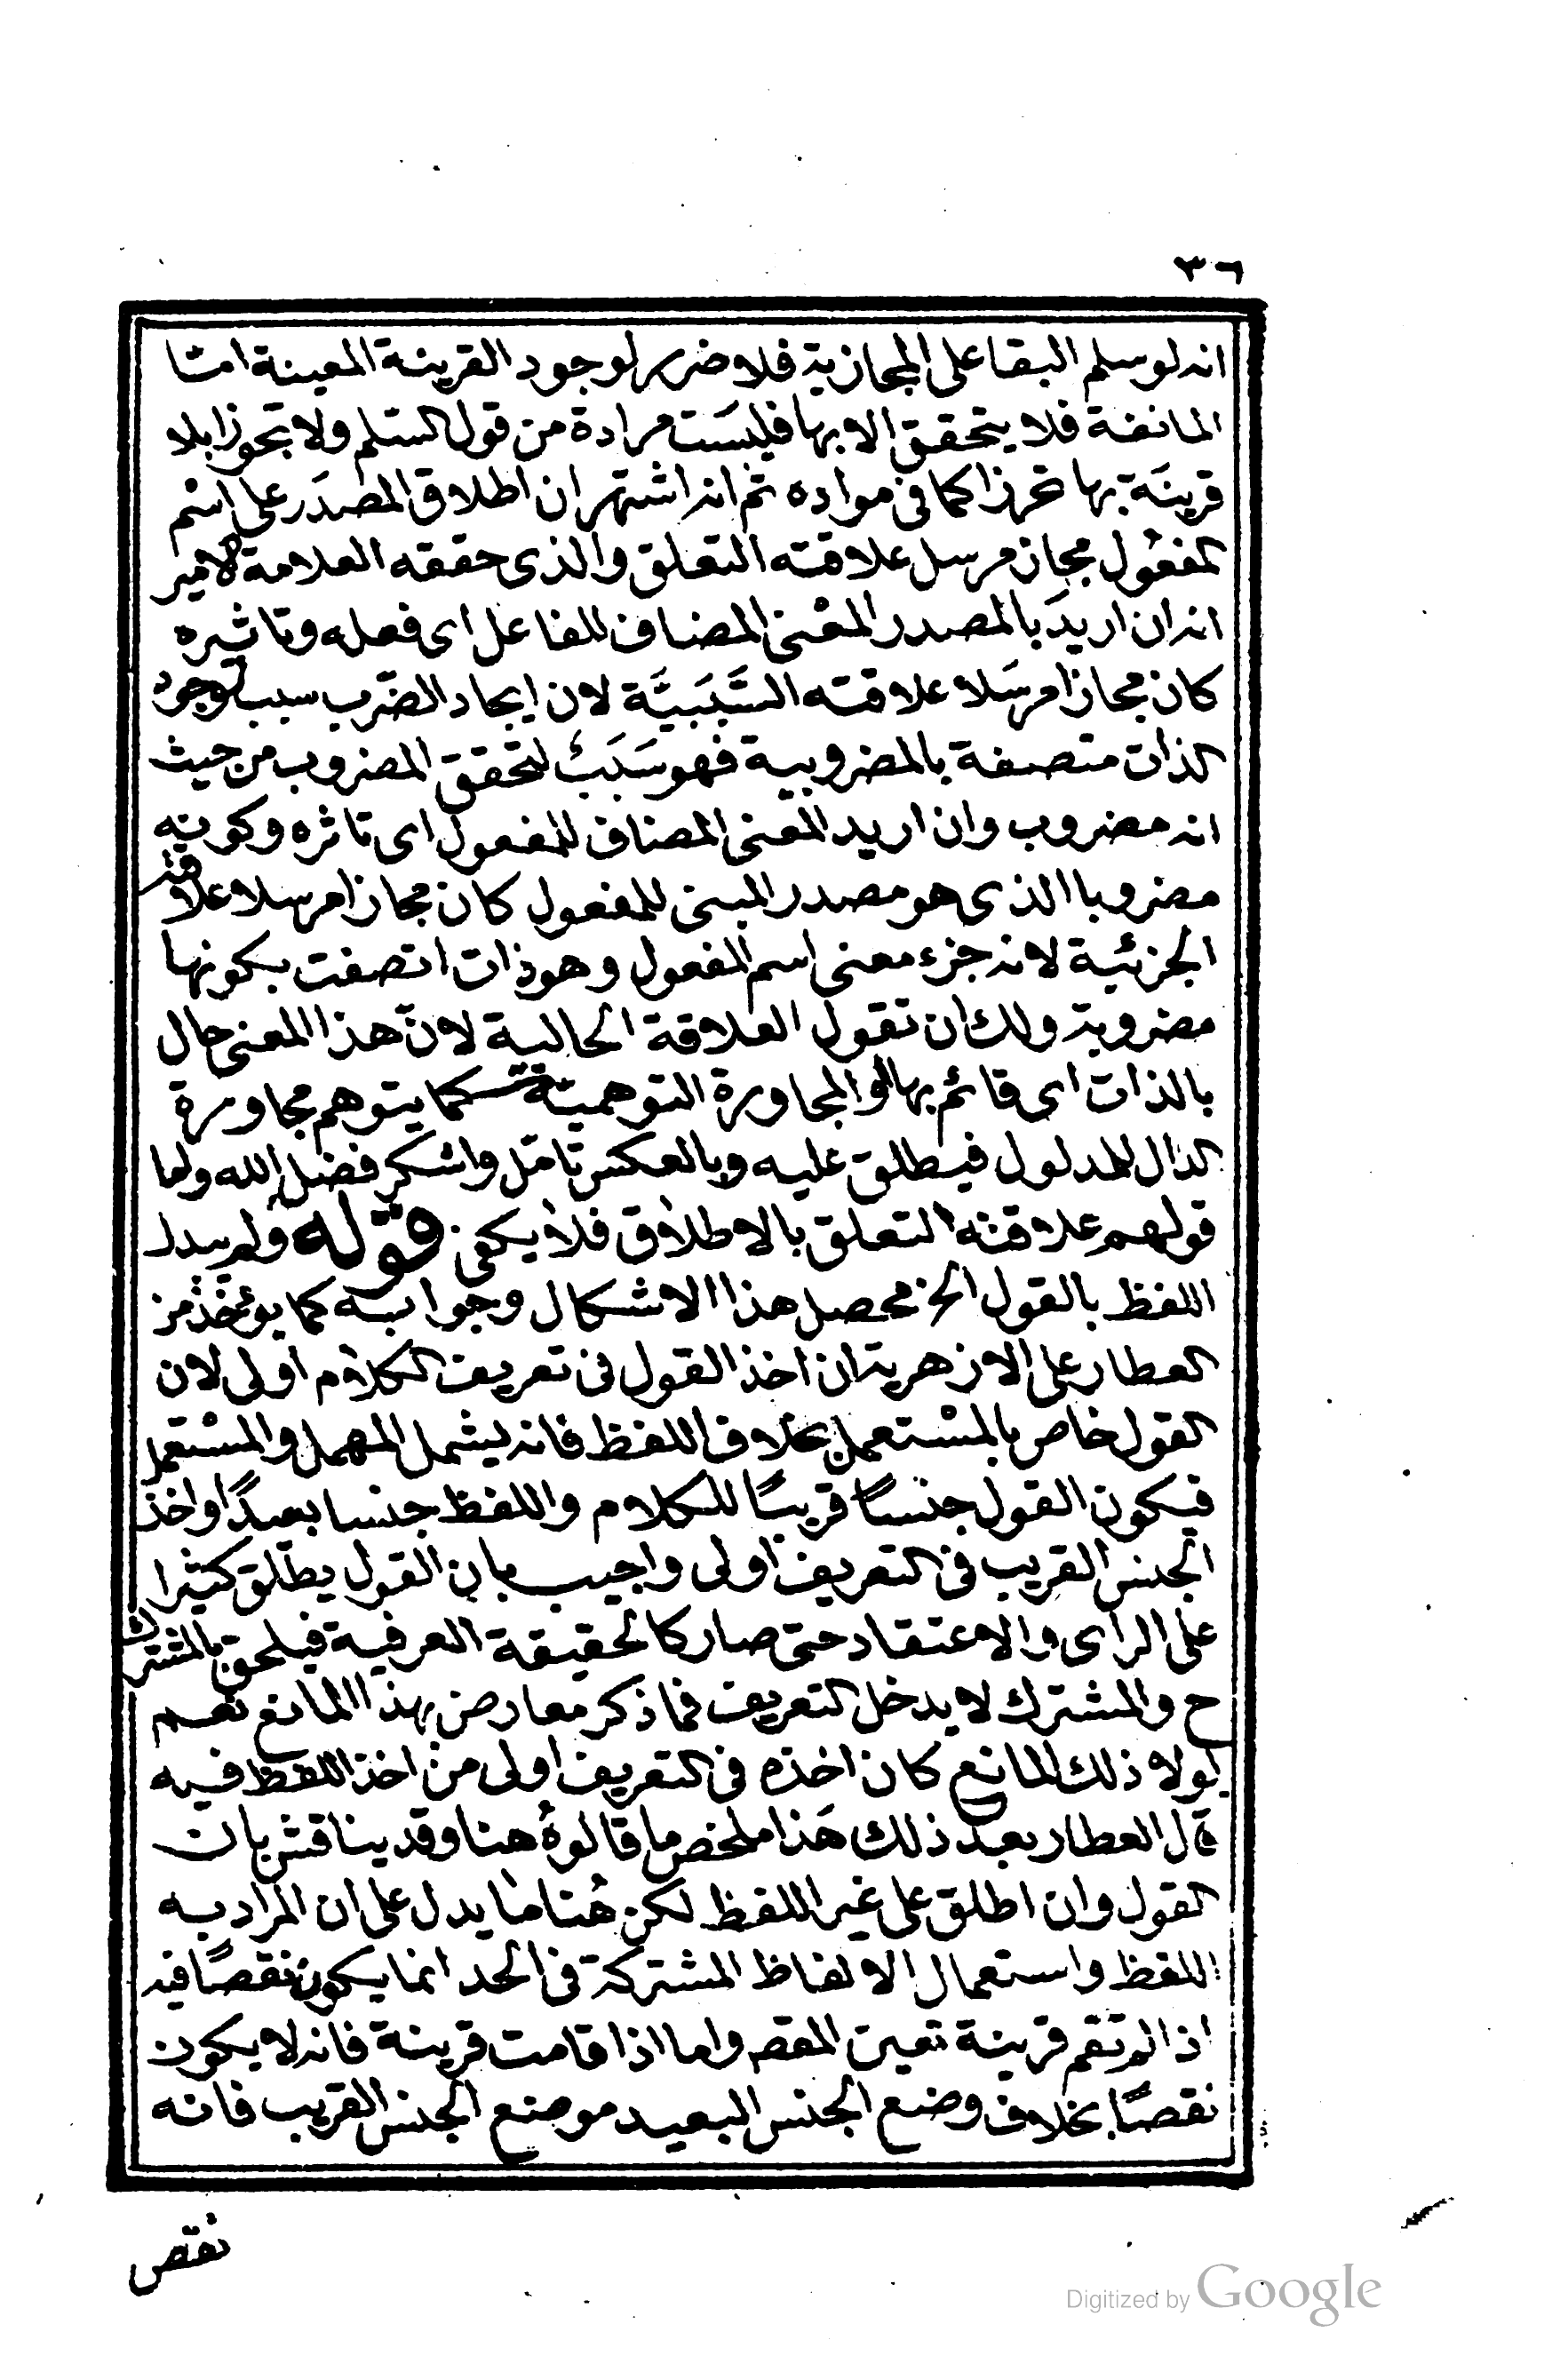 ٣٦
انه لو سلم البقا على المجازية فلا ضرر لوجود القرينة المعينة امّا
المانعة فلا يتحقق الا بها فليسَت مرادة من قول السّلم ولا تجوزا بلا
قرينَة بها غرزا كما فى مواده ثم انه اشتهر ان اطلاق المصدَر على اسْم
المفعُول مجاز مرسل علاقته التعلق والذى حققه العلامة الامير
انه ان اريدَ بالمصدر المعْنى المضاف للفاعل اى فعله وتاثيره
كان مجازا مرسَلا علاقته السَّبَبيَّة لان ايجاد الضّرب سبب لوجود
الذات متصفة بالمضروبية فهو سَبَبٌ لتحقق المضروب من حيث
انه مضروب وان اريد المعنى المضاف للمفعول اى تاثره وكونه
مضروبا الذى هو مصدر المبنى للمفعول كان مجازا مرسلا علاقته
الجزئية لانه جزء معنى اسم المفعول وهو ذات اتصفت بكونها
مضروبة ولك ان تقول العلاقة الحالية لانّ هذا المعنى حال
بالذات اى قائم بها او المجاورة التوهميّة كما يتوهم مجاورة
الدال للمدلول فيطلق عليه وبالعكس تامّل واشكر فضل الله واما
قولهم علاقته التعلق بالاطلاق فلا يكفى قوله ولم يبدل
اللفظ بالقول الخ محصل هذا الاشكال وجوابه كما يؤخذ من
العطار على الازهرية ان اخذ القول فى تعريف الكلام اولى لان
القول خاص بالمسْتعمل بخلاف اللفظ فانه يشمل المهمل والمسْتعمل
فيكون القول جنسًا قريبًا للكلام واللفظ جنسا بعيدًا واخذ
الجنس القريب فى التعريف اولى واجيب بان القول يطلق كثيرا
على الراى والاعتقاد حتى صار كالحقيقة العرفية فيلحق بالمشترك
ح والمشترك لا يدخل التعريف فما ذكر معارض بهذا المانع نعم
لولا ذلك المانع كان اخذه فى التعريف اولى من اخذ اللفظ فيه
قال العطار بعد ذلك هَذا ملخص ما قالوهُ هنا وقد يناقش بان
القول وان اطلق على غير اللفظ لكن هُنا ما يدل على ان المراد به
اللفظ واستعمال الالفاظ المشتركة فى الحد انما يكون نقصًا فيه
اذا لم تقم قرينة تعين المقصہ واما اذا قامت قرينة فانه لا يكون
نقصًا بخلاف وضع الجنس البعيد موضع الجنس القريب فانه
نقص
Digitized by Google